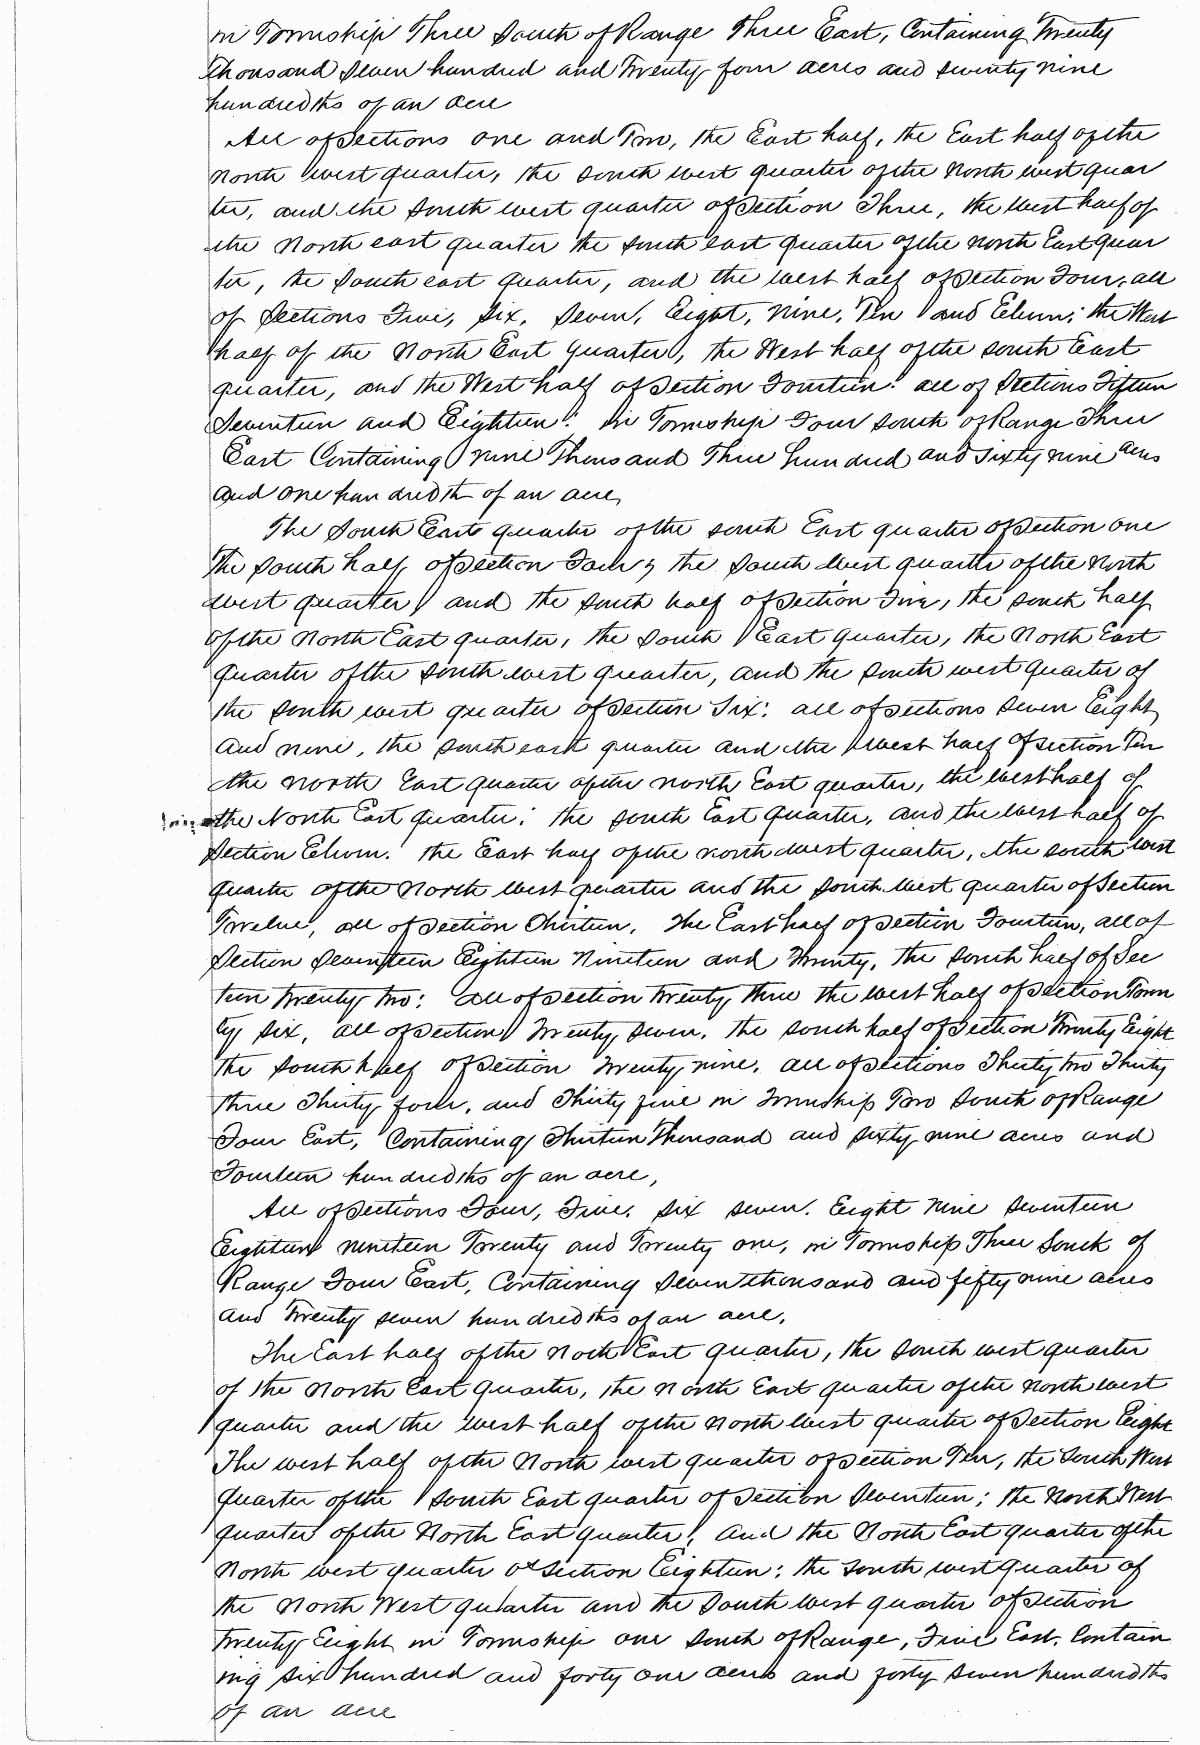 in Township Three South of Range Three East, Containing Twenty
Thousand Seven hundred and Twenty four acres and seventy nine
hundredths of an acre
All of Sections one and Two, the East half, the East half of the
North west quarter, the south west quarter of the North west quar
ter, and the south west quarter of Section Three, the west half of
the North east quarter the south east quarter of the north East quar
ter, the South east quarter, and the west half of Section Four, all
of Sections Five, Six, Seven, Eight, Nine, Ten and Eleven; the West
half of the North East Quarter, the West half of the south East
quarter, and the West half of Section Fourteen: all of Sections Fifteen
Seventeen and Eighteen: in Township Four South of Range Three
East Containing Nine Thousand Three hundred and sixty nine acres
and one hundredth of an acre,
The South East quarter of the south East quarter of Section one
The South half of Section Four; the South West quarter of the North
west quarter and the South half of Section Five, the South half
of the North East quarter, the South East quarter, the North East
quarter of the South west quarter, and the South west quarter of
the South west quarter of Section Six: all of Sections Seven Eight
and nine, the south east quarter and the West half of Section Ten
the North East quarter of the north East quarter, the west half of
the North East quarter: the South East quarter, and the west half of
Section Eleven. the East half of the north west quarter, the south west
quarter of the North west quarter and the South West quarter of Section
Twelve, all of Section Thirteen, The East half of Section Fourteen, all of
Section Seventeen Eighteen Nineteen and Twenty, the South half of Sec
tion Twenty two: all of Section Twenty three the west half of Section Twen
ty six, all of Section Twenty Seven, the South half of Section Twenty Eight
the South half of Section Twenty nine, all of Sections Thirty two Thirty
three Thirty four, and Thirty five in Township Two South of Range
Four East, Containing Thirteen Thousand and sixty nine acres and
Fourteen hundredths of an acre,
All of Sections Four, Five, Six Seven, Eight Nine Seventeen
Eighteen Nineteen Twenty and Twenty one, in Township Three South of
Range Four East, Containing Seven thousand and fifty nine acres
and Twenty seven hundredths of an acre,
The East half of the North East quarter, the South west quarter
of the North East Quarter, the North East quarter of the North west
quarter and the west half of the North West quarter of Section Eight
The west half of the North west quarter of Section Ten, the South West
Quarter of the South East quarter of Section Seventeen; the North West
quarter of the North East quarter, and the North East quarter of the
North west quarter of Section Eighteen: the South west quarter of
the North West quarter and the South west quarter of Section
Twenty Eight in Township one South of Range, Five East, Contain
ing six hundred and forty one acres and forty seven hundredths
of an acre